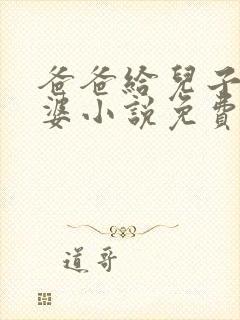 爸爸給兒子
婆小說免費
道哥